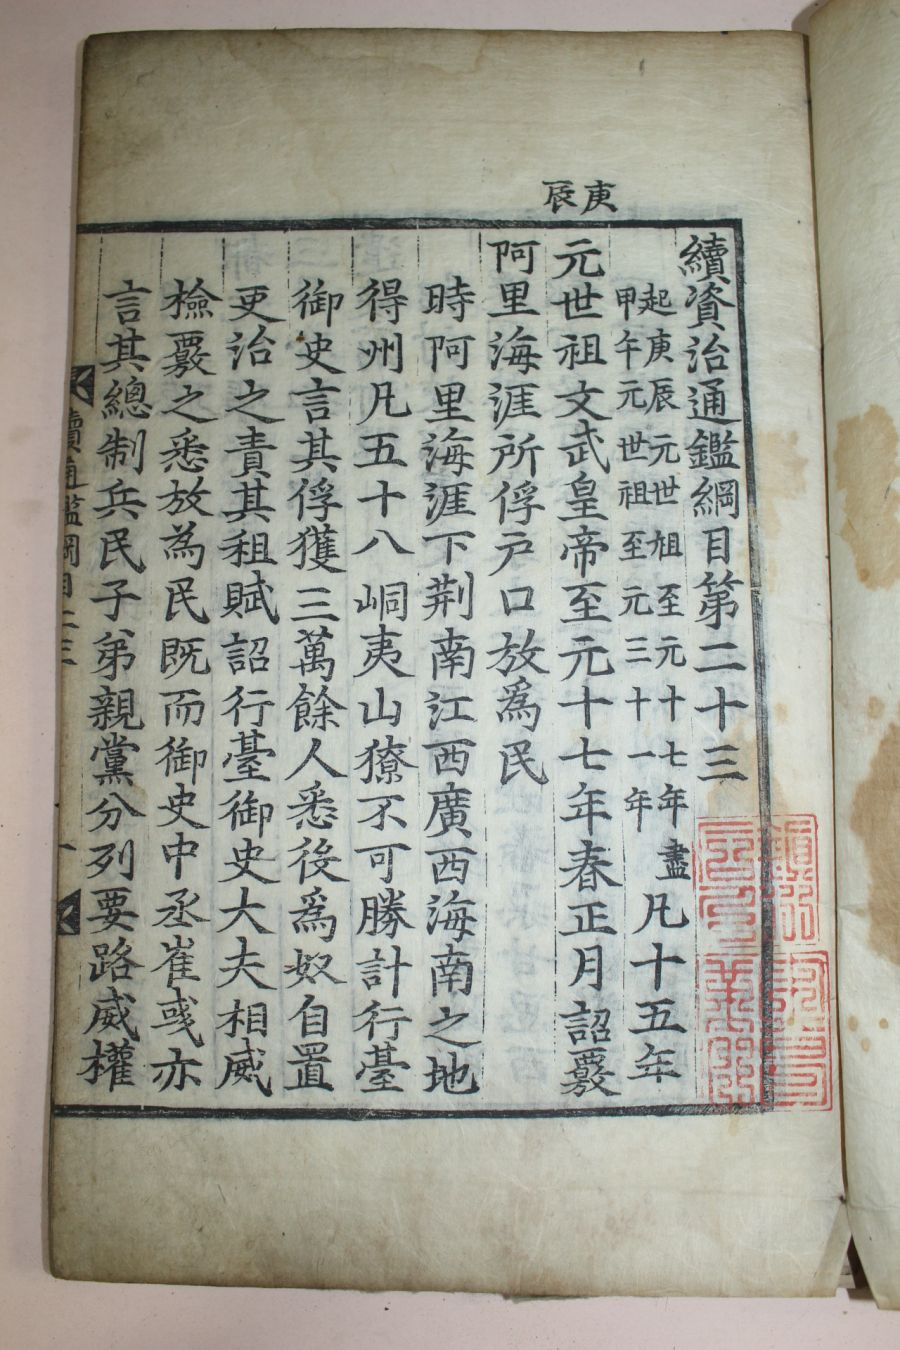 庚辰
續資治通鑑綱目第二十三
起庚辰元世祖至元十七年盡
甲午元世祖至元三十一年
凡十五年
元世祖文武皇帝至元十七年春正月詔覈
阿里海涯所俘户口放爲民
時阿里海涯下荆南江西廣西海南之地
得州凡五十八峒夷山獠不可勝計行臺
御史言其俘獲三萬餘人悉後爲奴自置
吏治之責其租賦詔行臺御史大夫相威
檢覈之悉放為民既而御史中丞崔彧亦
言其總制兵民子弟親黨分列要路威權
續通鑑綱目二三
一